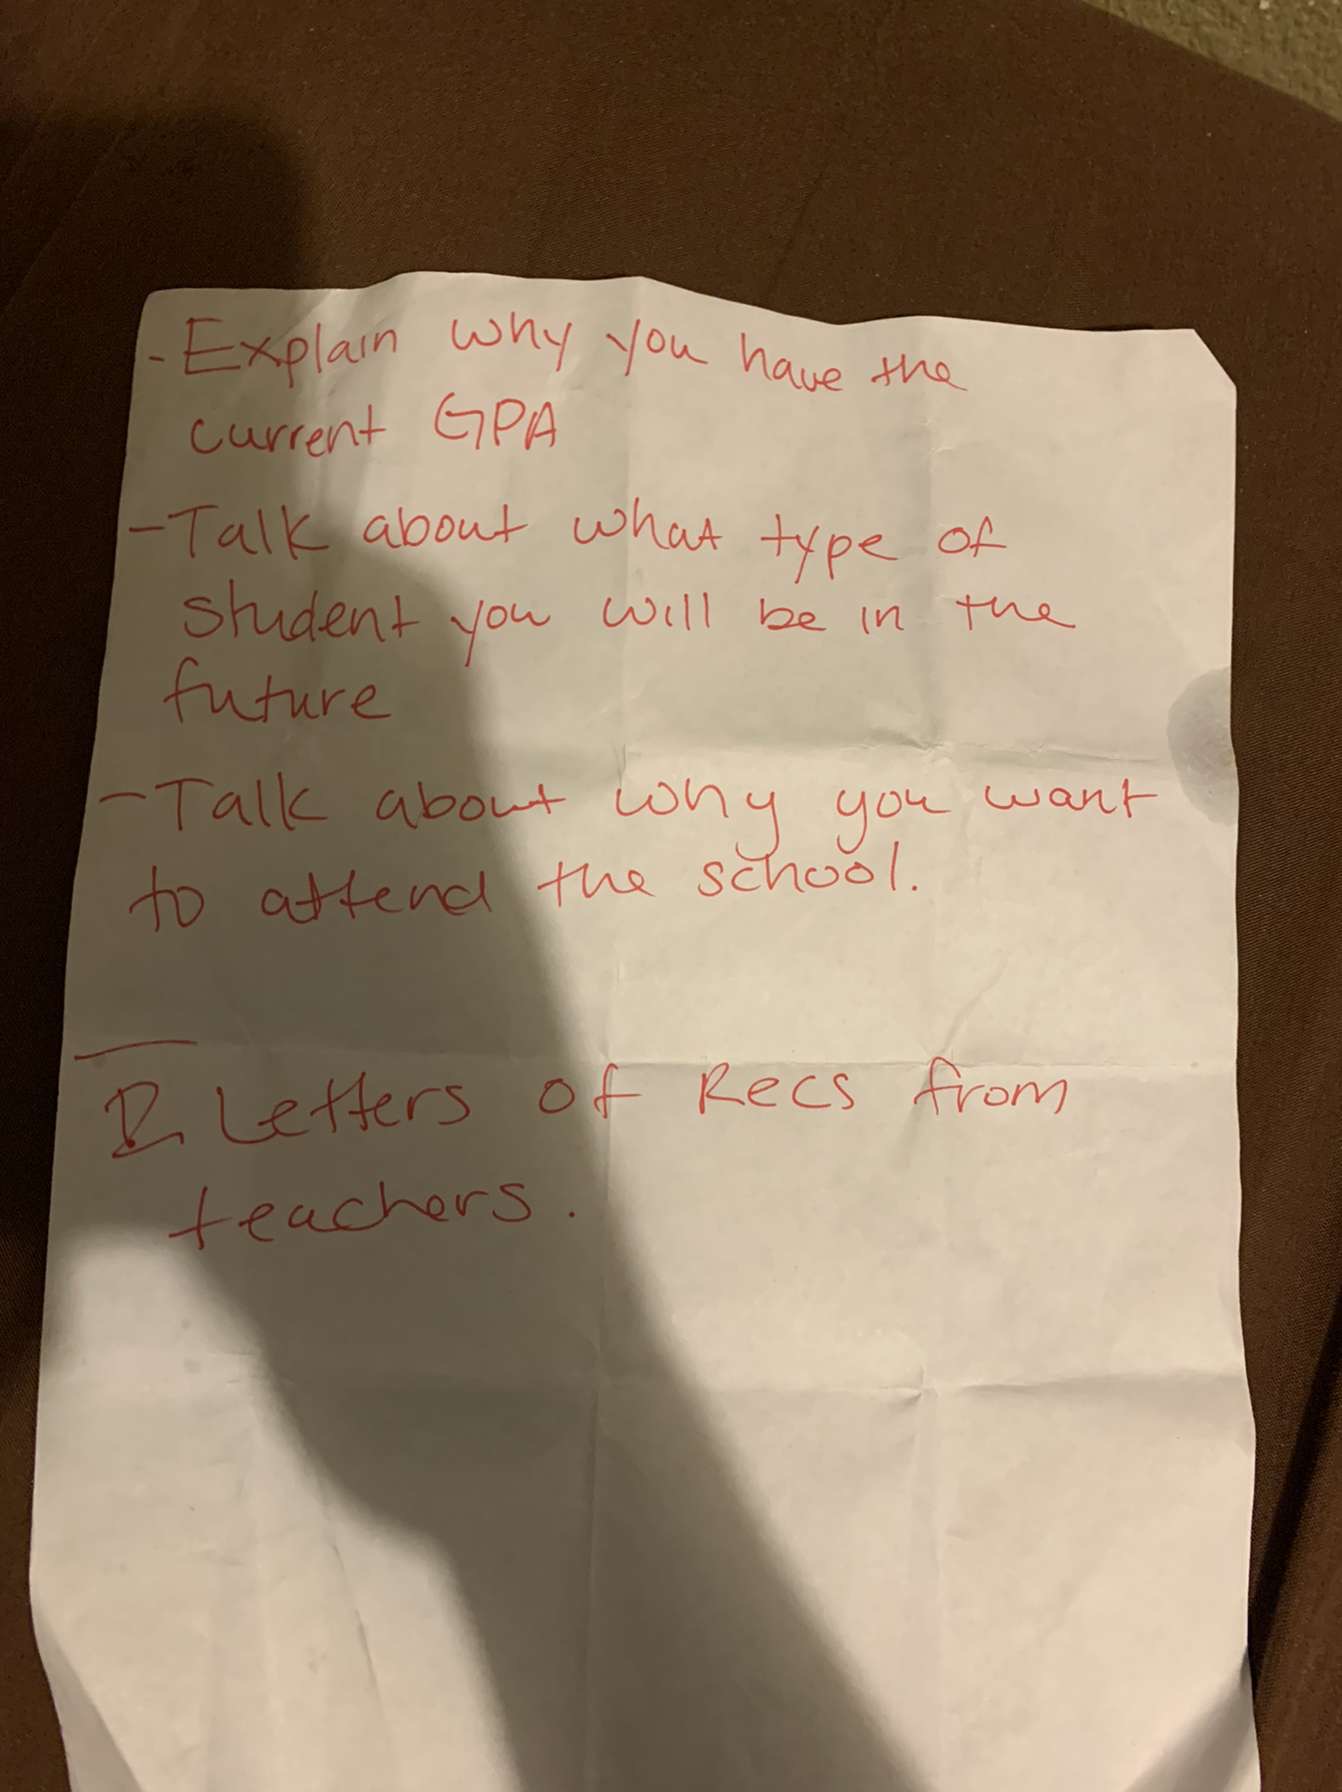 - Explain why you have the
current GPA
- Talk about what type of
student you will be in the
future
- Talk about why you want
to attend the school.
Letters of Recs from
teachers.